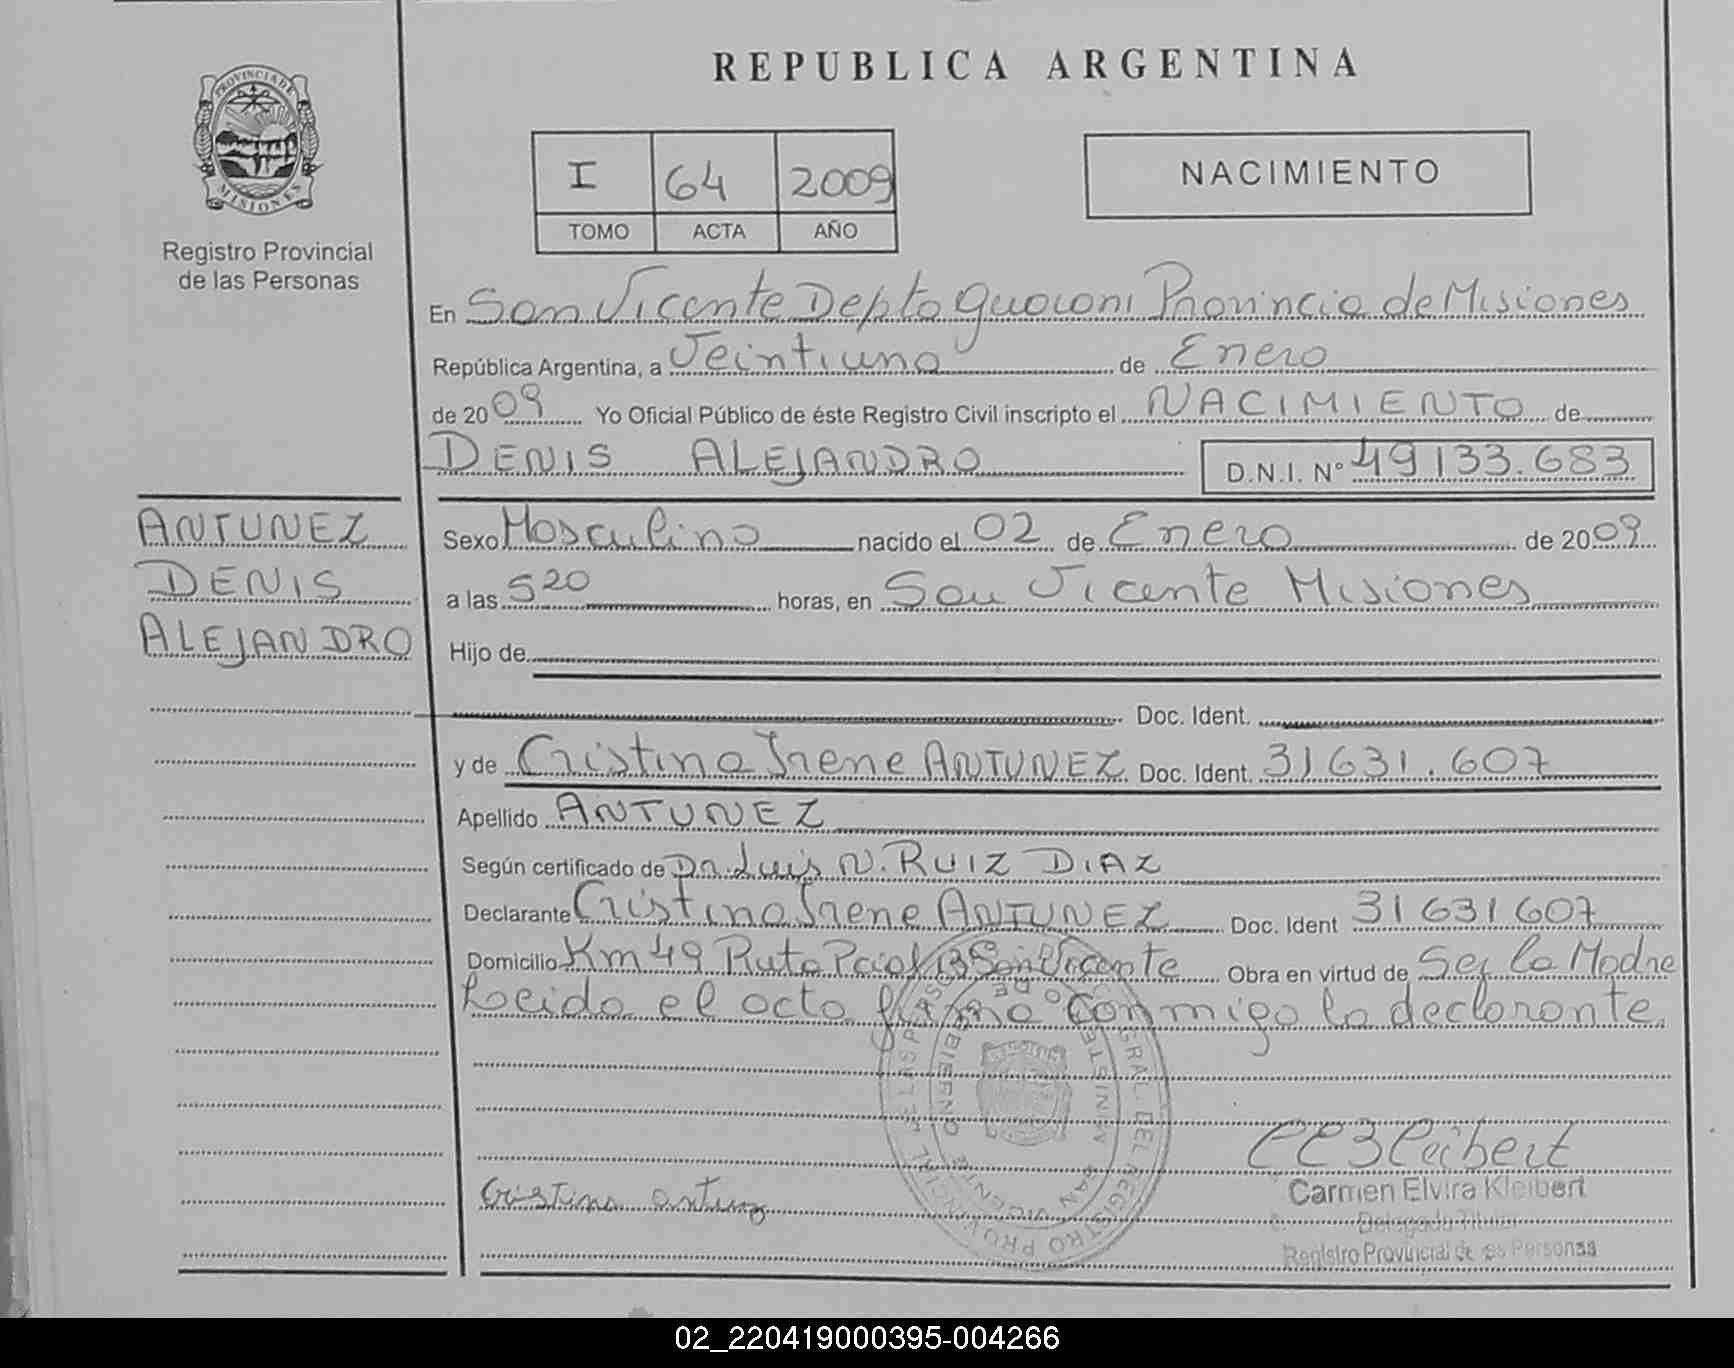 PROVINCIA DE
MISIONES
Registro Provincial
de las Personas
REPUBLICA ARGENTINA
I 64 2009
TOMO ACTA AÑO
NACIMIENTO
En San Vicente Depto Guaraní Provincia de Misiones
República Argentina, a Veintiuno de Enero
de 2009 Yo Oficial Público de éste Registro Civil inscripto el NACIMIENTO de
DENIS ALEJANDRO D.N.I. N° 49133.683
ANTUNEZ
DENIS
ALEJANDRO
Sexo Masculino nacido el 02 de Enero de 2009
a las 520 horas, en San Vicente Misiones
Hijo de
Doc. Ident.
y de Cristina Irene ANTUNEZ Doc. Ident. 31631.607
Apellido ANTUNEZ
Según certificado de Dr. Luis N. RUIZ DIAZ
Declarante Cristina Irene ANTUNEZ Doc. Ident 31631607
Domicilio Km 49 Ruta Pcial 13 San Vicente Obra en virtud de Ser la Madre
Leida el acta firma conmigo la declarante
Cristina antunez
Carmen Elvira Kleibert
Delegada Titular
Registro Provincial de las Personas
02_220419000395-004266